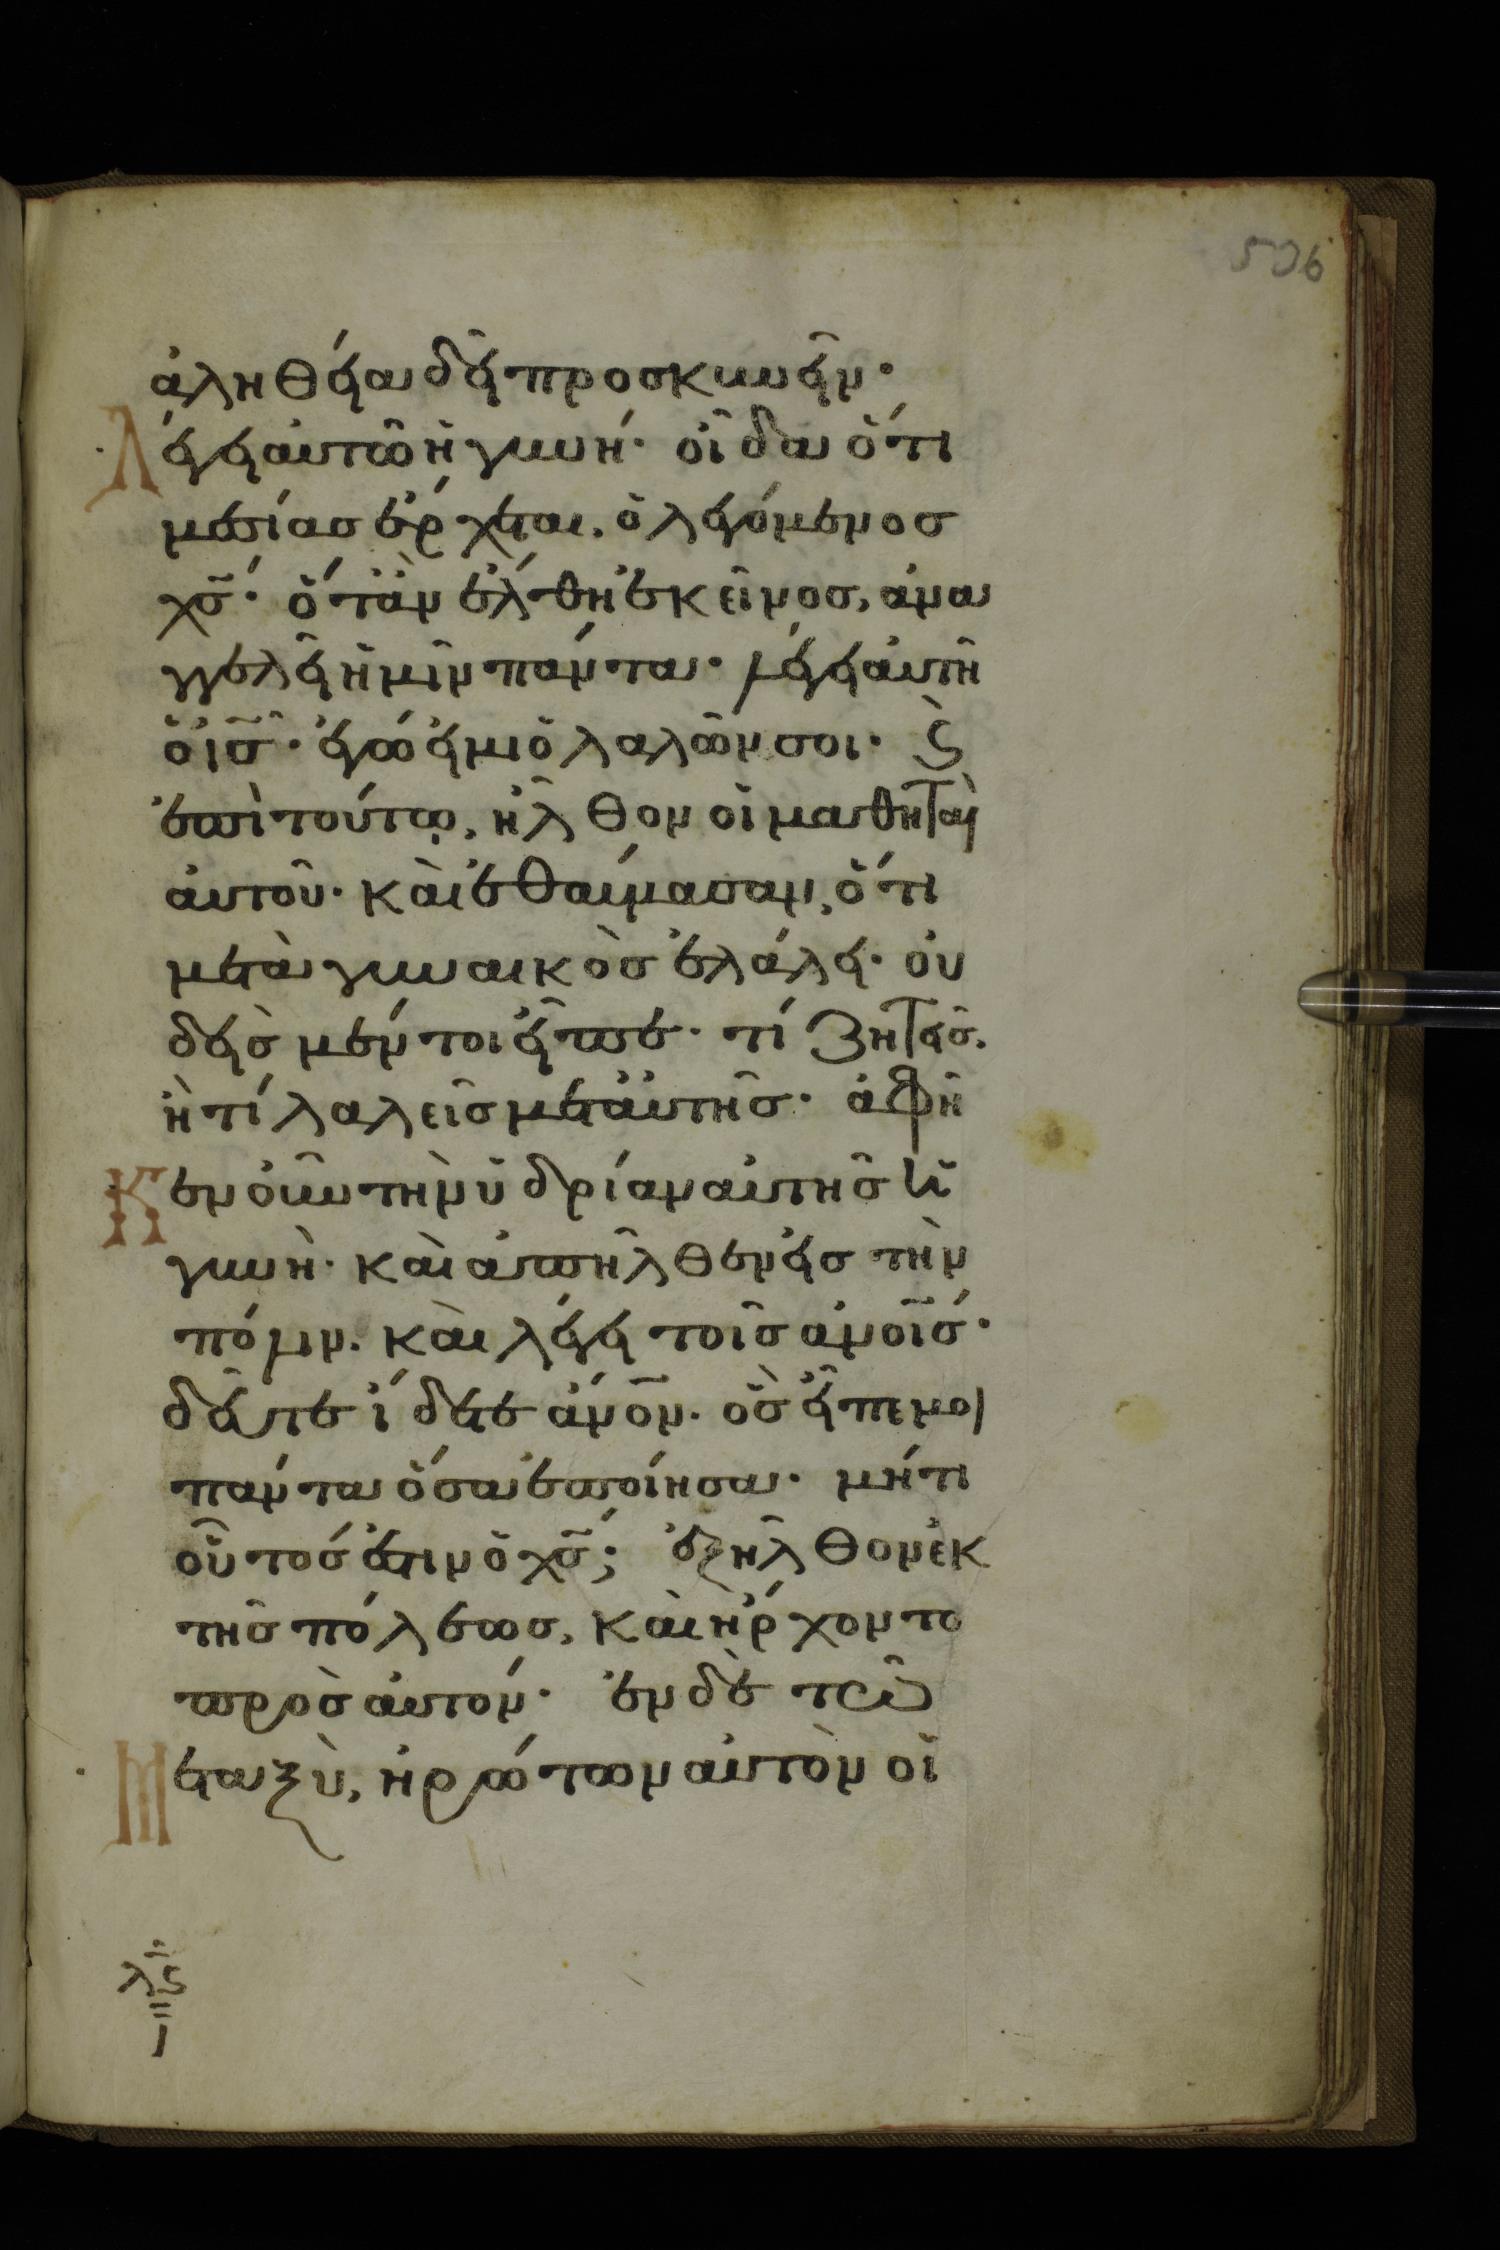 506
ἀληθεία δεῖ προσκυνεῖν·
Λέγει αὐτῶ ἡ γυνή· οἶδα ὅτι
μεσίασ ἔρχεται, ὁ λεγόμενοσ
χσ̅· ὅταν ἔλθη ἐκεῖνοσ, ἀνα
γγελεῖ ἡμῖν πάντα· λέγει αὐτῆ
ὁ ισ̅· ἐγώ εἰμι ὁ λαλῶν σοι· ϛ
ἐπὶ τούτω, ἦλθον οἱ μαθηταὶ
αὐτοῦ· καὶ ἐθαύμασαν, ὅτι
μετὰ γυναικὸσ ἐλάλει· οὐ
δεὶσ μέντοι εἶπε· τί ζητεῖσ.
ἢ τί λαλεῖσ μετ αὐτῆσ· ἀφῆ
Κεν οὖν τὴν ὑδρίαν αὐτῆσ ἡ
γυνὴ· καὶ ἀπῆλθεν εἰσ τὴν
πόλιν. καὶ λέγει τοῖσ ἀνοῖσ·
δεῦτε ἴδετε ἄνον̅. ὃσ εἶπέ μοι
πάντα ὅσα ἐποίησα· μήτι
οὗτόσ ἐστιν ὁ χσ̅; ἐξῆλθον ἐκ
τῆσ πόλεωσ, καὶ ἤρχοντο
πρὸσ αὐτόν· ἐν δὲ τῶ
Μεταξὺ, ἠρώτων αὐτὸν οἱ
λϛ